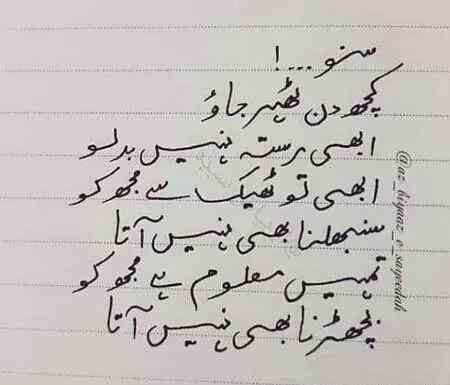 سنو...!
کچھ دن ٹھہر جاؤ
ابھی رستہ نہیں بدلو
ابھی تو ٹھیک سے مجھ کو
سنبھلنا بھی نہیں آتا
تمہیں معلوم ہے مجھ کو
بچھڑنا بھی نہیں آتا